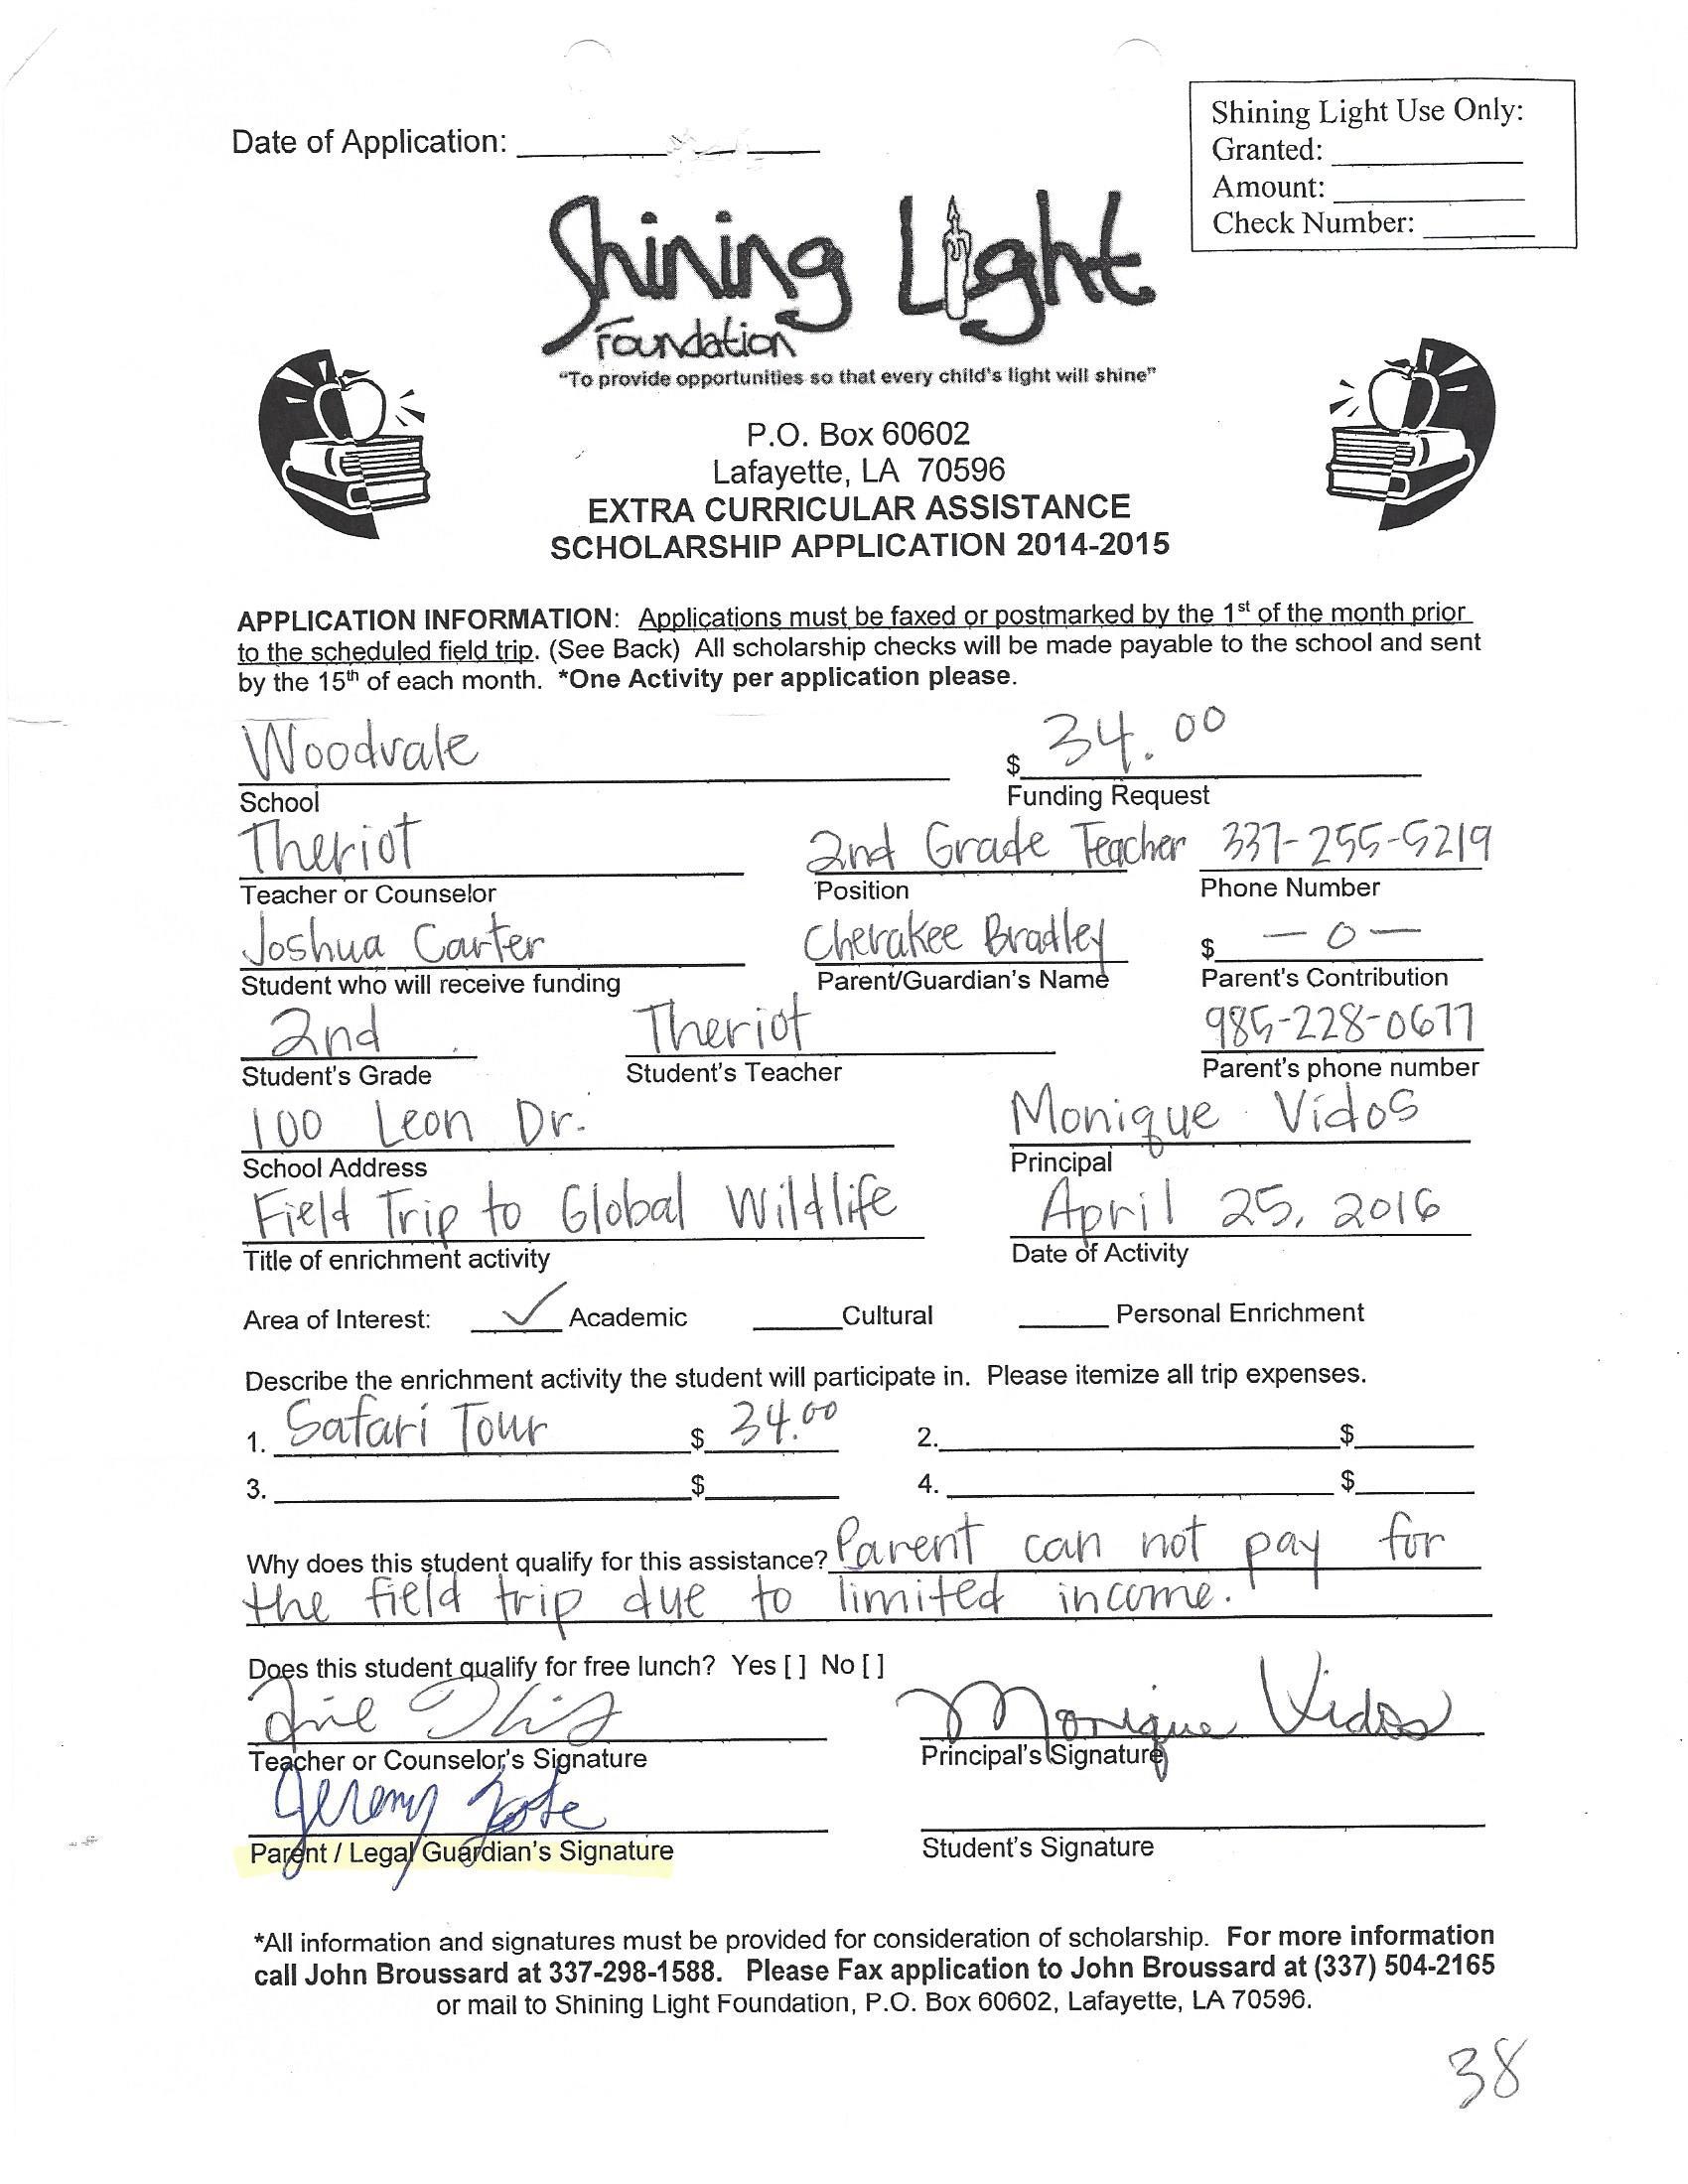 Shining Light Use Only:
Date of Application: ____
Granted: ____
Amount: ____
Check Number: ____
Shining Light
Foundation
"To provide opportunities so that every child's light will shine"
P.O. Box 60602
Lafayette, LA 70596
EXTRA CURRICULAR ASSISTANCE
SCHOLARSHIP APPLICATION 2014-2015
APPLICATION INFORMATION: Applications must be faxed or postmarked by the 1st of the month prior
to the scheduled field trip. (See Back) All scholarship checks will be made payable to the school and sent
by the 15th of each month. *One Activity per application please.
Woodvale $ 34.00
School Funding Request
Theriot 2nd Grade Teacher 337-255-5219
Teacher or Counselor Position Phone Number
Joshua Carter Cherakee Bradley $ -0-
Student who will receive funding Parent/Guardian's Name Parent's Contribution
2nd Theriot 985-228-0677
Student's Grade Student's Teacher Parent's phone number
100 Leon Dr. Monique Vidos
School Address Principal
Field Trip to Global Wildlife April 25, 2016
Title of enrichment activity Date of Activity
Area of Interest: ✓ Academic ____ Cultural ____ Personal Enrichment
Describe the enrichment activity the student will participate in. Please itemize all trip expenses.
1. Safari Tour $ 34.00 2. ____ $ ____
3. ____ $ ____ 4. ____ $ ____
Why does this student qualify for this assistance? Parent can not pay for
the field trip due to limited income.
Does this student qualify for free lunch? Yes [ ] No [ ]
Monique Vidos
Teacher or Counselor's Signature Principal's Signature
Jeremy
Parent / Legal Guardian's Signature Student's Signature
*All information and signatures must be provided for consideration of scholarship. For more information
call John Broussard at 337-298-1588. Please Fax application to John Broussard at (337) 504-2165
or mail to Shining Light Foundation, P.O. Box 60602, Lafayette, LA 70596.
38